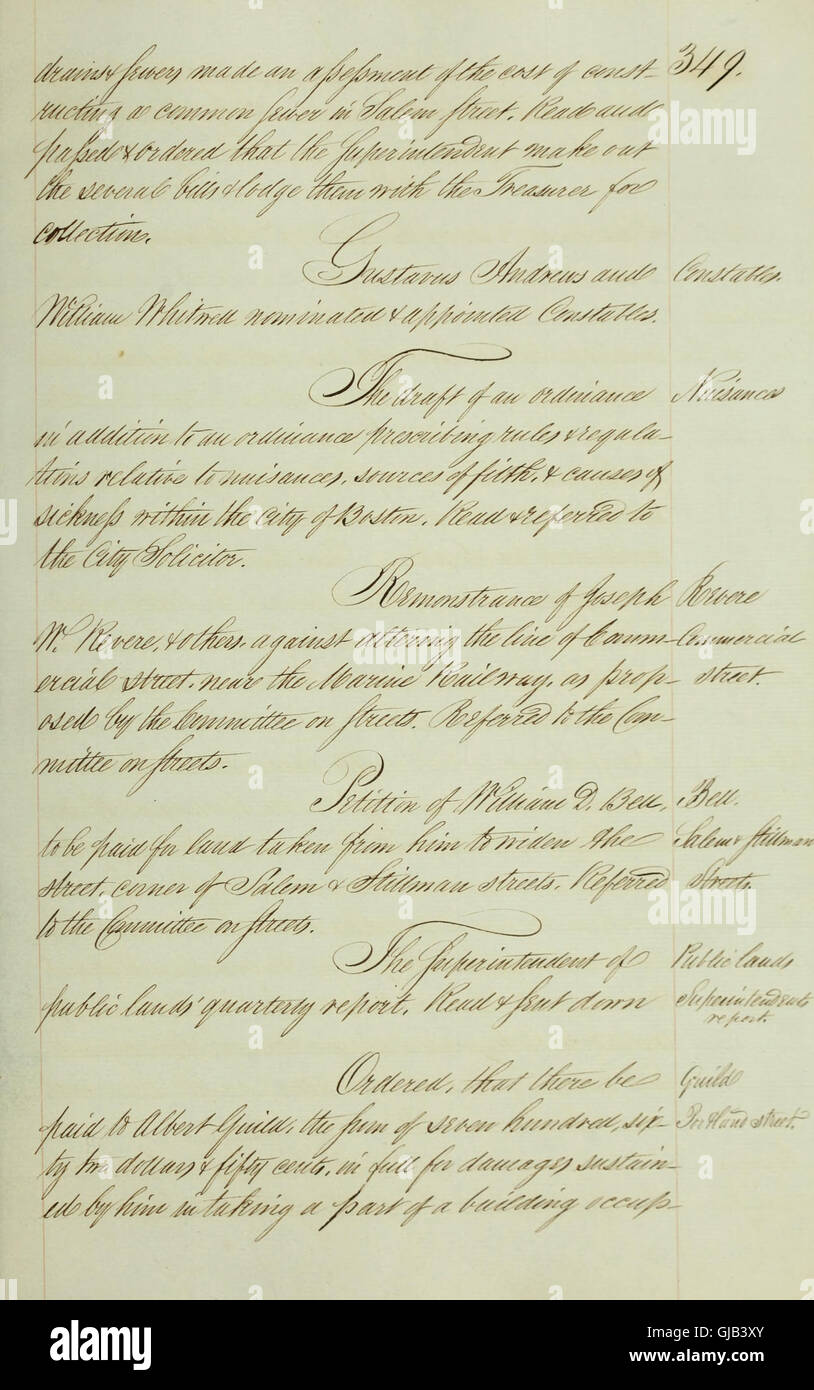 349.
drains & sewers made an assessment of the cost of const-
ructing a common sewer in Salem Street. Read and
passed & ordered that the Superintendent make out
the several bills & lodge them with the Treasurer for
collection.
Gustavus Andrews and
Constables.
William Whitwell nominated & appointed Constables.
The draft of an ordinance
Nuisances
in addition to an ordinance prescribing rules & regula-
tions relative to nuisances, sources of filth, & causes of
sickness within the City of Boston. Read & referred to
the City Solicitor.
Remonstrance of Joseph
Revere
W. Revere, & others, against altering the line of Comm-
Commercial
ercial street, near the Marine Railway, as prop-
street.
osed by the Committee on Streets. Referred to the Com-
mittee on Streets.
Petition of William D. Bell,
Bell.
to be paid for land taken from him to widen the
Salem & Stillman
street, corner of Salem & Stillman streets. Referred
Streets.
to the Committee on Streets.
The Superintendent of
Public lands
public lands' quarterly report. Read & sent down
Superintendents
report.
Ordered, that there be
Guild
paid to Albert Guild, the sum of seven hundred, six-
Portland street.
ty two dollars & fifty cents, in full for damages sustain-
ed by him in taking a part of a building occup-
alamy
Image ID: GJB3XY
www.alamy.com